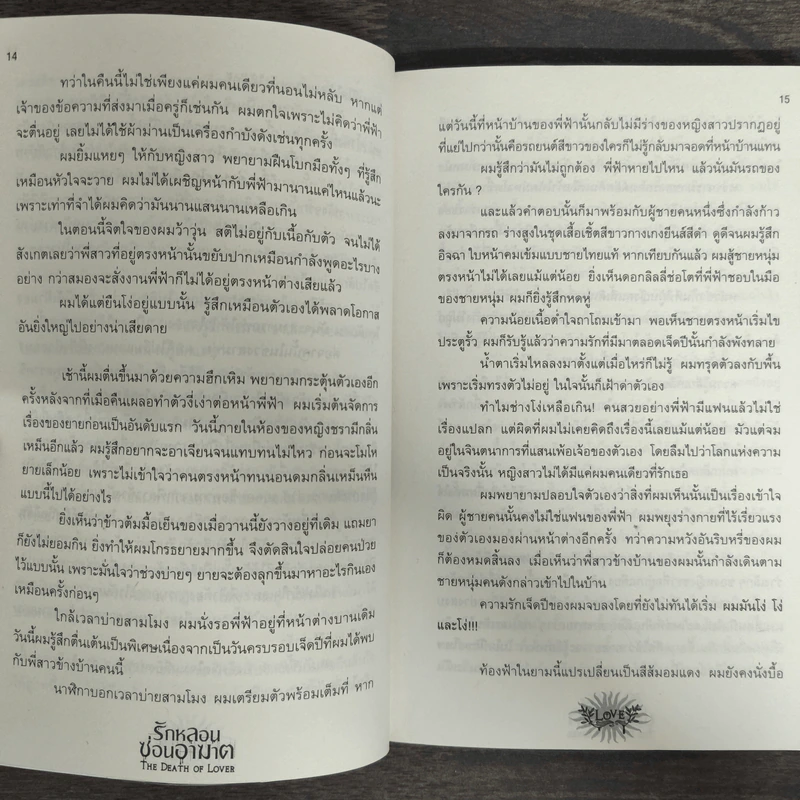 14
ทว่าในคืนนี้ไม่ใช่เพียงแค่ผมคนเดียวที่นอนไม่หลับ หากแต่
เจ้าของข้อความที่ส่งมาเมื่อครู่ก็เช่นกัน ผมตกใจเพราะไม่คิดว่าพี่ฟ้า
จะตื่นอยู่ เลยไม่ได้ใช้ผ้าม่านเป็นเครื่องกำบังดังเช่นทุกครั้ง
ผมยิ้มแหยๆ ให้กับหญิงสาว พยายามฝืนโบกมือทั้งๆ ที่รู้สึก
เหมือนหัวใจจะวาย ผมไม่ได้เผชิญหน้ากับพี่ฟ้ามานานแค่ไหนแล้วนะ
เพราะเท่าที่จำได้ผมคิดว่ามันนานแสนนานเหลือเกิน
ในตอนนี้จิตใจของผมว้าวุ่น สติไม่อยู่กับเนื้อกับตัว จนไม่ได้
สังเกตเลยว่าพี่สาวที่อยู่ตรงหน้านั้นขยับปากเหมือนกำลังพูดอะไรบาง
อย่าง กว่าสมองจะสั่งงานพี่ฟ้าก็ไม่ได้อยู่ตรงหน้าต่างเสียแล้ว
ผมได้แต่ยืนโง่อยู่แบบนั้น รู้สึกเหมือนตัวเองได้พลาดโอกาส
อันยิ่งใหญ่ไปอย่างน่าเสียดาย
เช้านี้ผมตื่นขึ้นมาด้วยความฮึกเหิม พยายามกระตุ้นตัวเองอีก
ครั้งหลังจากที่เมื่อคืนเผลอทำตัวงี่เง่าต่อหน้าพี่ฟ้า ผมเริ่มต้นจัดการ
เรื่องของยายก่อนเป็นอันดับแรก วันนี้ภายในห้องของหญิงชรามีกลิ่น
เหม็นอีกแล้ว ผมรู้สึกอยากจะอาเจียนจนแทบทนไม่ไหว ก่อนจะโมโห
ยายเล็กน้อย เพราะไม่เข้าใจว่าคนตรงหน้าทนนอนดมกลิ่นเหม็นหืน
แบบนี้ไปได้อย่างไร
ยิ่งเห็นว่าข้าวต้มมื้อเย็นของเมื่อวานนี้ยังวางอยู่ที่เดิม แถมยา
ก็ยังไม่ยอมกิน ยิ่งทำให้ผมโกรธยายมากขึ้น จึงตัดสินใจปล่อยคนป่วย
ไว้แบบนั้น เพราะมั่นใจว่าช่วงบ่ายๆ ยายจะต้องลุกขึ้นมาหาอะไรกินเอง
เหมือนครั้งก่อนๆ
ใกล้เวลาบ่ายสามโมง ผมนั่งรอพี่ฟ้าอยู่ที่หน้าต่างบานเดิม
วันนี้ผมรู้สึกตื่นเต้นเป็นพิเศษเนื่องจากเป็นวันครบรอบเจ็ดปีที่ผมได้พบ
กับพี่สาวข้างบ้านคนนี้
นาฬิกาบอกเวลาบ่ายสามโมง ผมเตรียมตัวพร้อมเต็มที่ หาก
รักหลอน
ซ่อนอาฆาต
THE DEATH OF LOVER
15
แต่วันนี้ที่หน้าบ้านของพี่ฟ้านั้นกลับไม่มีร่างของหญิงสาวปรากฏอยู่
ที่แย่ไปกว่านั้นคือรถยนต์สีขาวของใครก็ไม่รู้กลับมาจอดที่หน้าบ้านแทน
ผมรู้สึกว่ามันไม่ถูกต้อง พี่ฟ้าหายไปไหน แล้วนั่นมันรถของ
ใครกัน ?
และแล้วคำตอบนั้นก็มาพร้อมกับผู้ชายคนหนึ่งซึ่งกำลังก้าว
ลงมาจากรถ ร่างสูงในชุดเสื้อเชิ้ตสีขาวกางเกงยีนส์สีดำ ดูดีจนผมรู้สึก
อิจฉา ใบหน้าคมเข้มแบบชายไทยแท้ หากเทียบกันแล้ว ผมสู้ชายหนุ่ม
ตรงหน้าไม่ได้เลยแม้แต่น้อย ยิ่งเห็นดอกลิลลี่ช่อโตที่พี่ฟ้าชอบในมือ
ของชายหนุ่ม ผมก็ยิ่งรู้สึกหดหู่
ความน้อยเนื้อต่ำใจถาโถมเข้ามา พอเห็นชายตรงหน้าเริ่มไข
ประตูรั้ว ผมก็รับรู้แล้วว่าความรักที่มีมาตลอดเจ็ดปีนั้นกำลังพังทลาย
น้ำตาเริ่มไหลลงมาตั้งแต่เมื่อไหร่ก็ไม่รู้ ผมทรุดตัวลงกับพื้น
เพราะเริ่มทรงตัวไม่อยู่ ในใจนั้นก็เฝ้าด่าตัวเอง
ทำไมช่างโง่เหลือเกิน! คนสวยอย่างพี่ฟ้ามีแฟนแล้วไม่ใช่
เรื่องแปลก แต่ผิดที่ผมไม่เคยคิดถึงเรื่องนี้เลยแม้แต่น้อย มัวแต่จม
อยู่ในจินตนาการที่แสนเพ้อเจ้อของตัวเอง โดยลืมไปว่าโลกแห่งความ
เป็นจริงนั้น หญิงสาวไม่ได้มีแค่ผมคนเดียวที่รักเธอ
ผมพยายามปลอบใจตัวเองว่าสิ่งที่ผมเห็นนั้นเป็นเรื่องเข้าใจ
ผิด ผู้ชายคนนั้นคงไม่ใช่แฟนของพี่ฟ้า ผมพยุงร่างกายที่ไร้เรี่ยวแรง
ของตัวเองมองผ่านหน้าต่างอีกครั้ง ทว่าความหวังอันริบหรี่ของผม
ก็ต้องหมดสิ้นลง เมื่อเห็นว่าพี่สาวข้างบ้านของผมนั้นกำลังเดินตาม
ชายหนุ่มคนดังกล่าวเข้าไปในบ้าน
ความรักเจ็ดปีของผมจบลงโดยที่ยังไม่ทันได้เริ่ม ผมมันโง่ โง่
และโง่!!!
ท้องฟ้าในยามนี้แปรเปลี่ยนเป็นสีส้มอมแดง ผมยังคงนั่งบื้อ
LOVE